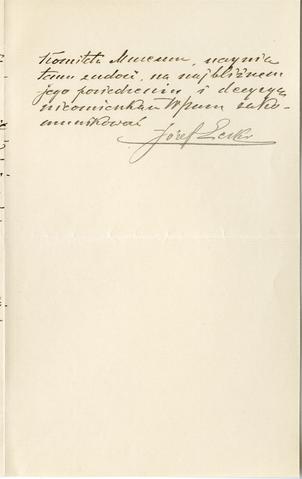 Komitetu Muzeum, uczynię
temu zadość, na najbliższem
jego posiedzeniu i decyzyę
nieomieszkam WPanu zako-
munikować
Józef